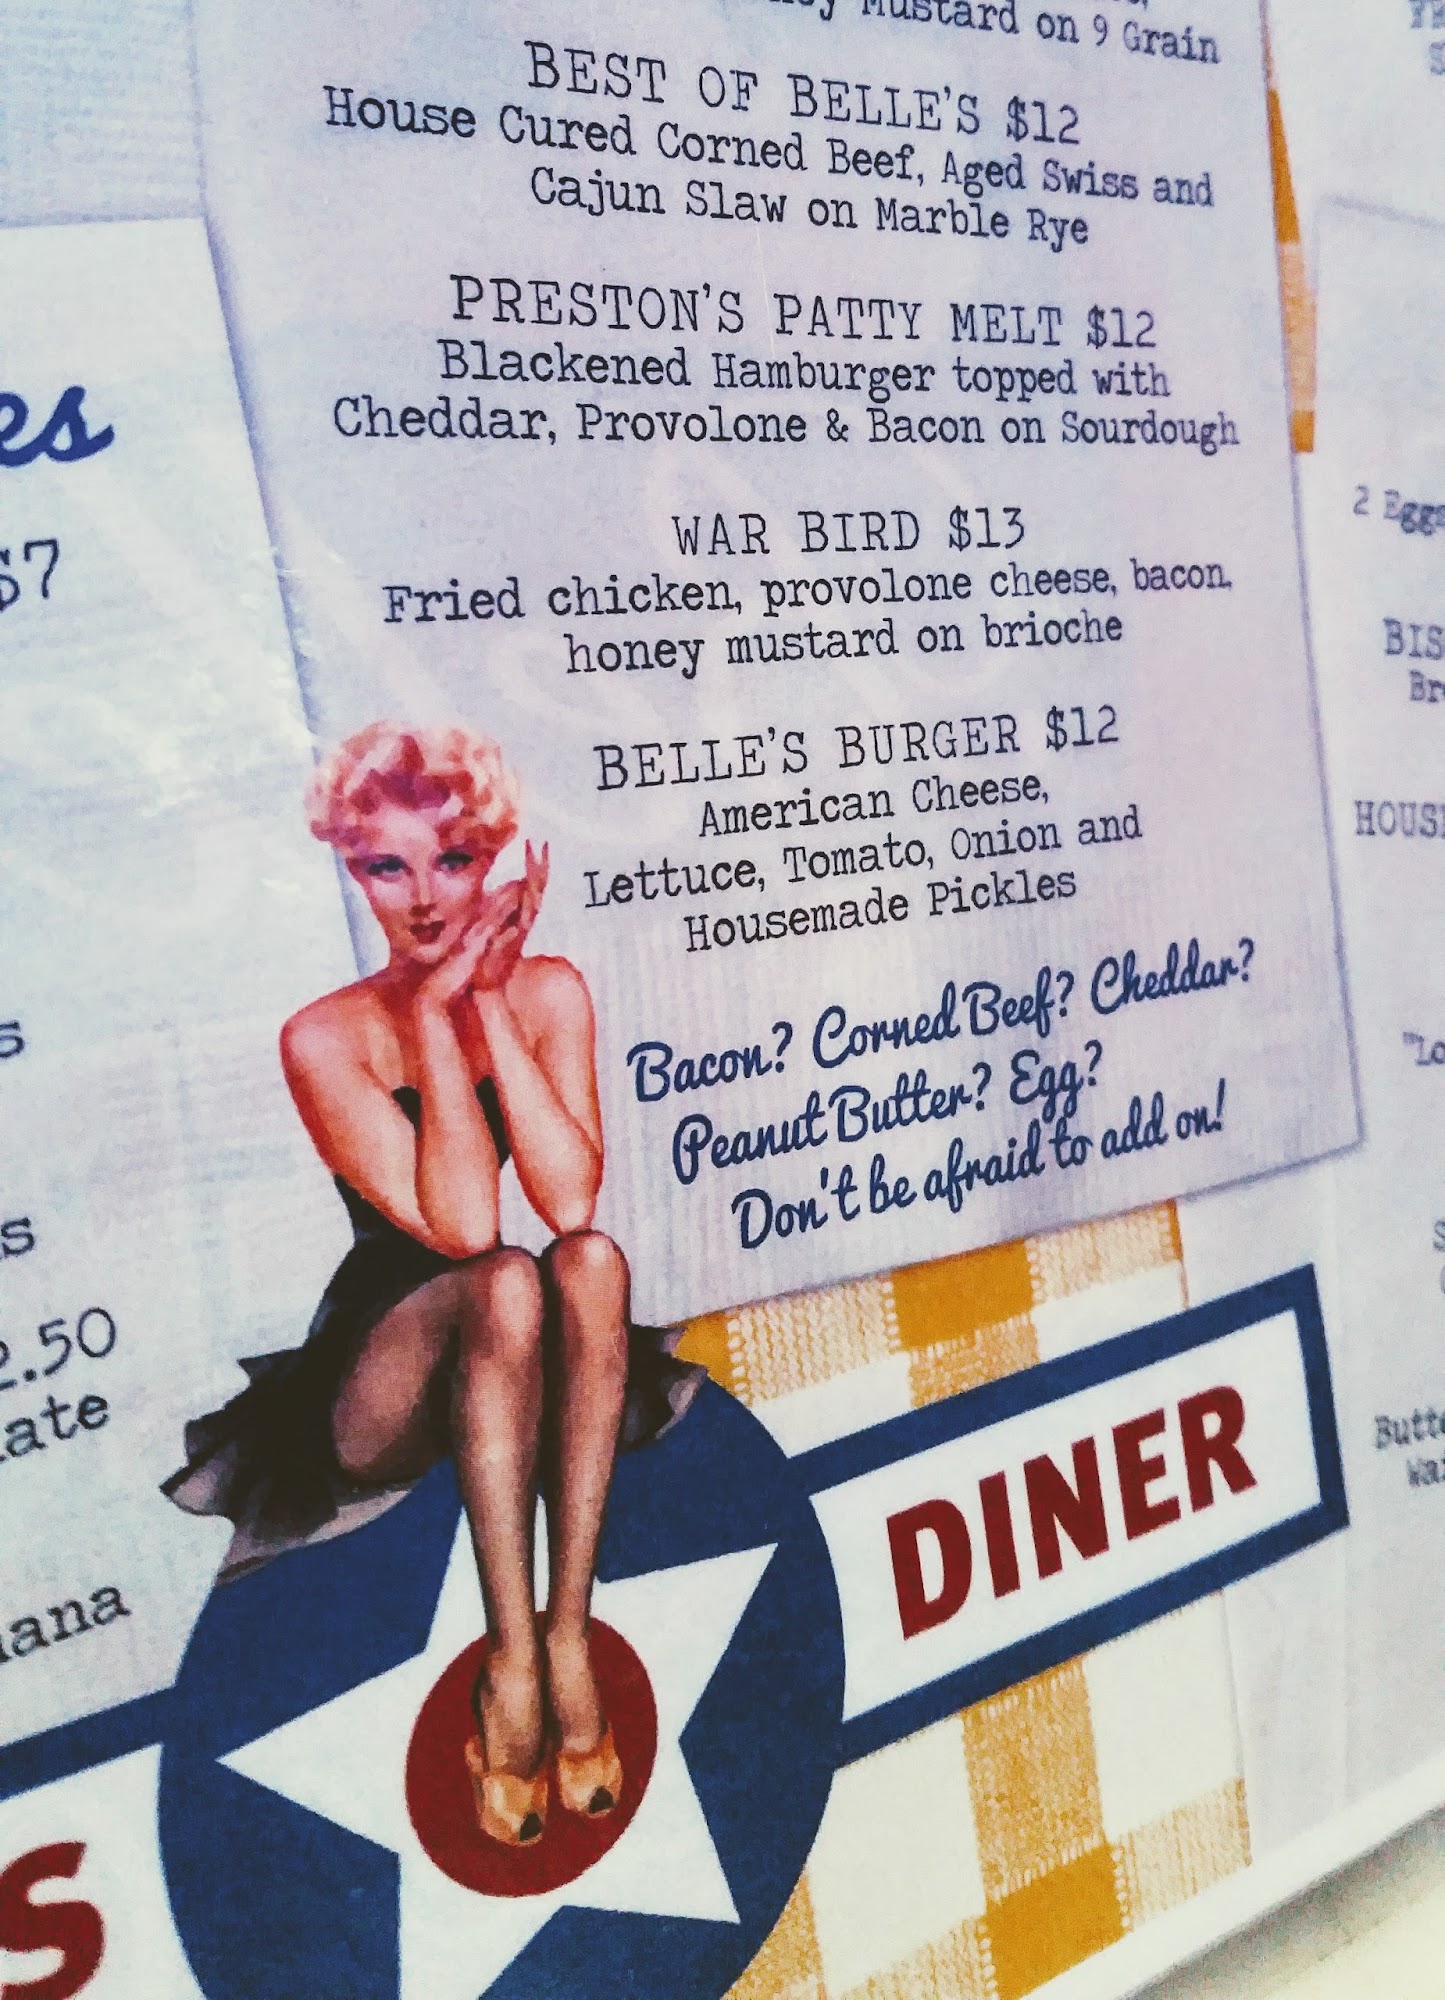 Mustard on 9 Grain
BEST OF BELLE'S $12
House Cured Corned Beef, Aged Swiss and
Cajun Slaw on Marble Rye
PRESTON'S PATTY MELT $12
Blackened Hamburger topped with
Cheddar, Provolone & Bacon on Sourdough
WAR BIRD $13
Fried chicken, provolone cheese, bacon,
honey mustard on brioche
BELLE'S BURGER $12
American Cheese,
Lettuce, Tomato, Onion and
Housemade Pickles
Bacon? Corned Beef? Cheddar?
Peanut Butter? Egg?
Don't be afraid to add on!
DINER
es
$7
s
s
2.50
ate
ana
S
2 Eggs
BIS
Br
HOUS
"Lo
Butte
Wa